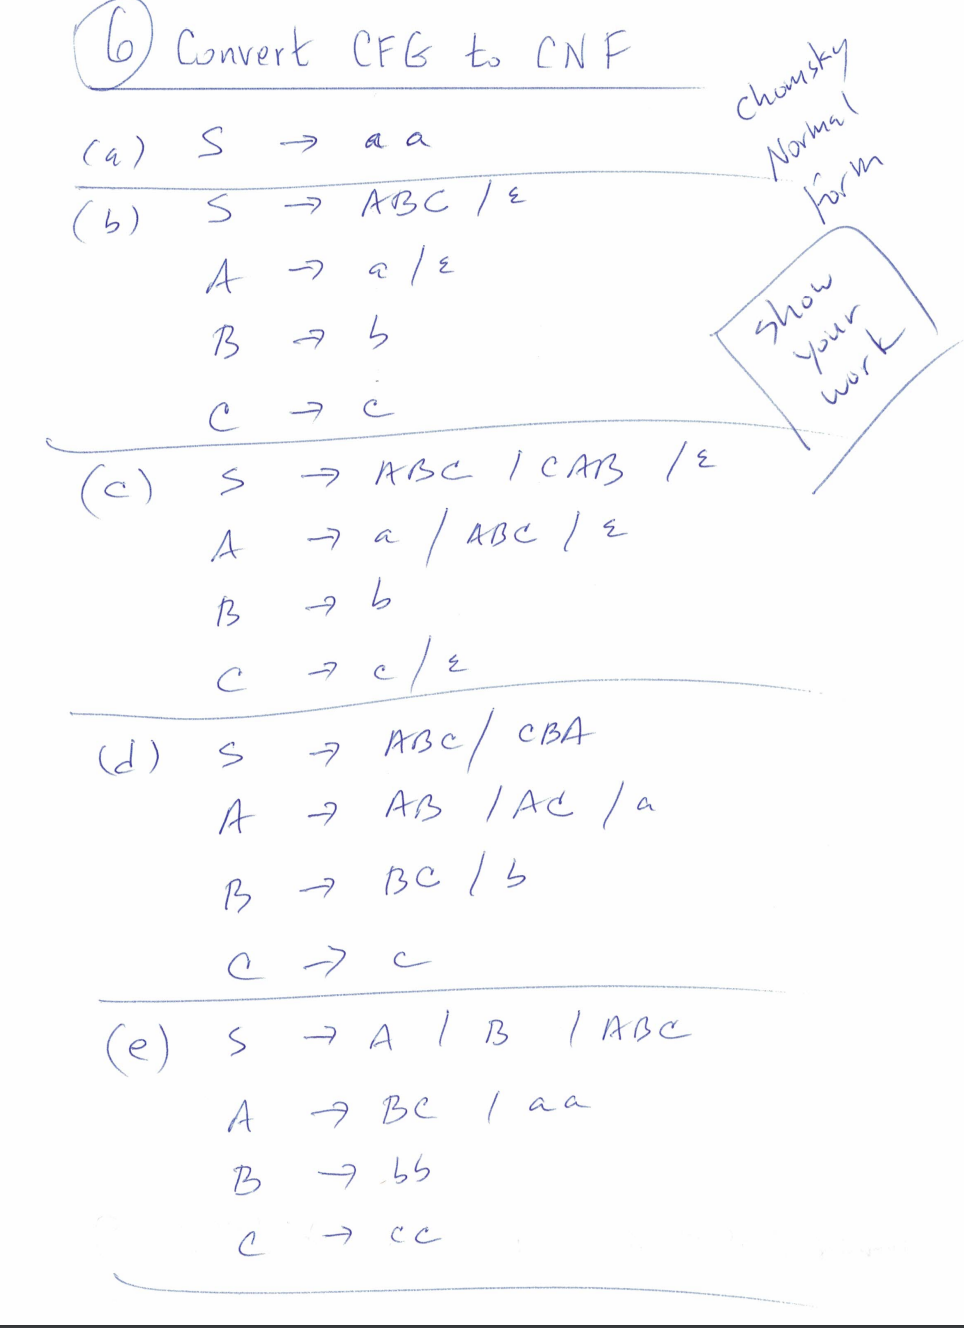 6 Convert CFG to CNF
Chomsky
Normal
Form
(a) S → a a
(b) S → ABC / ε
A → a / ε
B → b
C → c
Show
your
work
(c) S → ABC / CAB / ε
A → a / ABC / ε
B → b
C → c / ε
(d) S → ABC / CBA
A → AB / AC / a
B → BC / b
C → c
(e) S → A / B / ABC
A → BC / aa
B → bb
C → cc